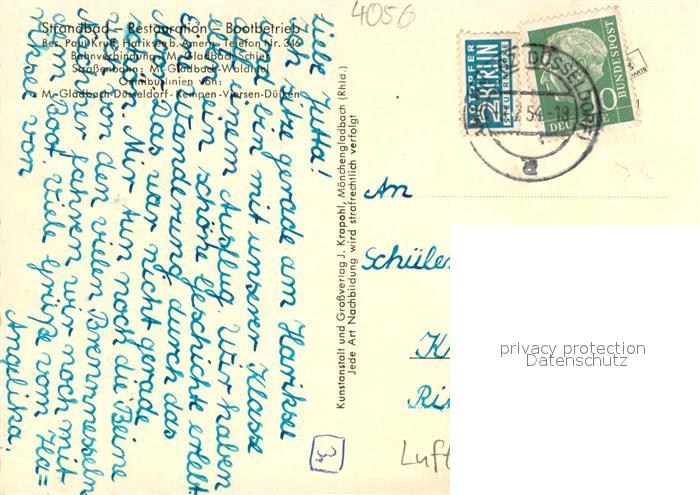 Strandbad – Restauration – Bootbetrieb
Bes. Paul Kruff, Hariksee b. Amern - Telefon Nr. 346
Bahnverbindung: M. Gladbach-Schier
Straßenbahn: M. Gladbach-Waldniel
Omnibuslinien von:
M.-Gladbach-Düsseldorf - Kempen-Viersen-Dülken
Liebe Jutta!
Ich sitze gerade am Hariksee
und bin mit unserer Klasse
auf einem Ausflug. Wir haben
schon ein schöne Geschichte erlebt.
Eine Wanderung durch das
Das war nicht gerade
schön. Mir tun noch die Beine
weh von den vielen Brennnesseln
Nachher fahren wir noch mit
dem Boot. Viele Grüße vom Ha=
riksee von
Angelika.
Kunstanstalt und Großverlag J. Krapohl, Mönchengladbach (Rhld.)
Jede Art Nachbildung wird strafrechtlich verfolgt
4056
NOTOPFER
2 BERLIN
STEUERMARKE
DEUTSCHE BUNDESPOST
DÜSSELDORF
54.-18
An
Schüler
K
Rin
Luft
3,
privacy protection
Datenschutz